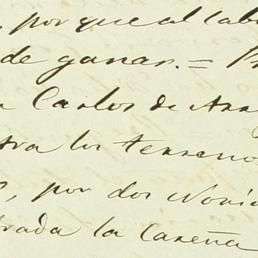 , por que al cab
de ganar. = P
Carlos de Arr
tra los terreno
, por dos Novi
trada la Careña